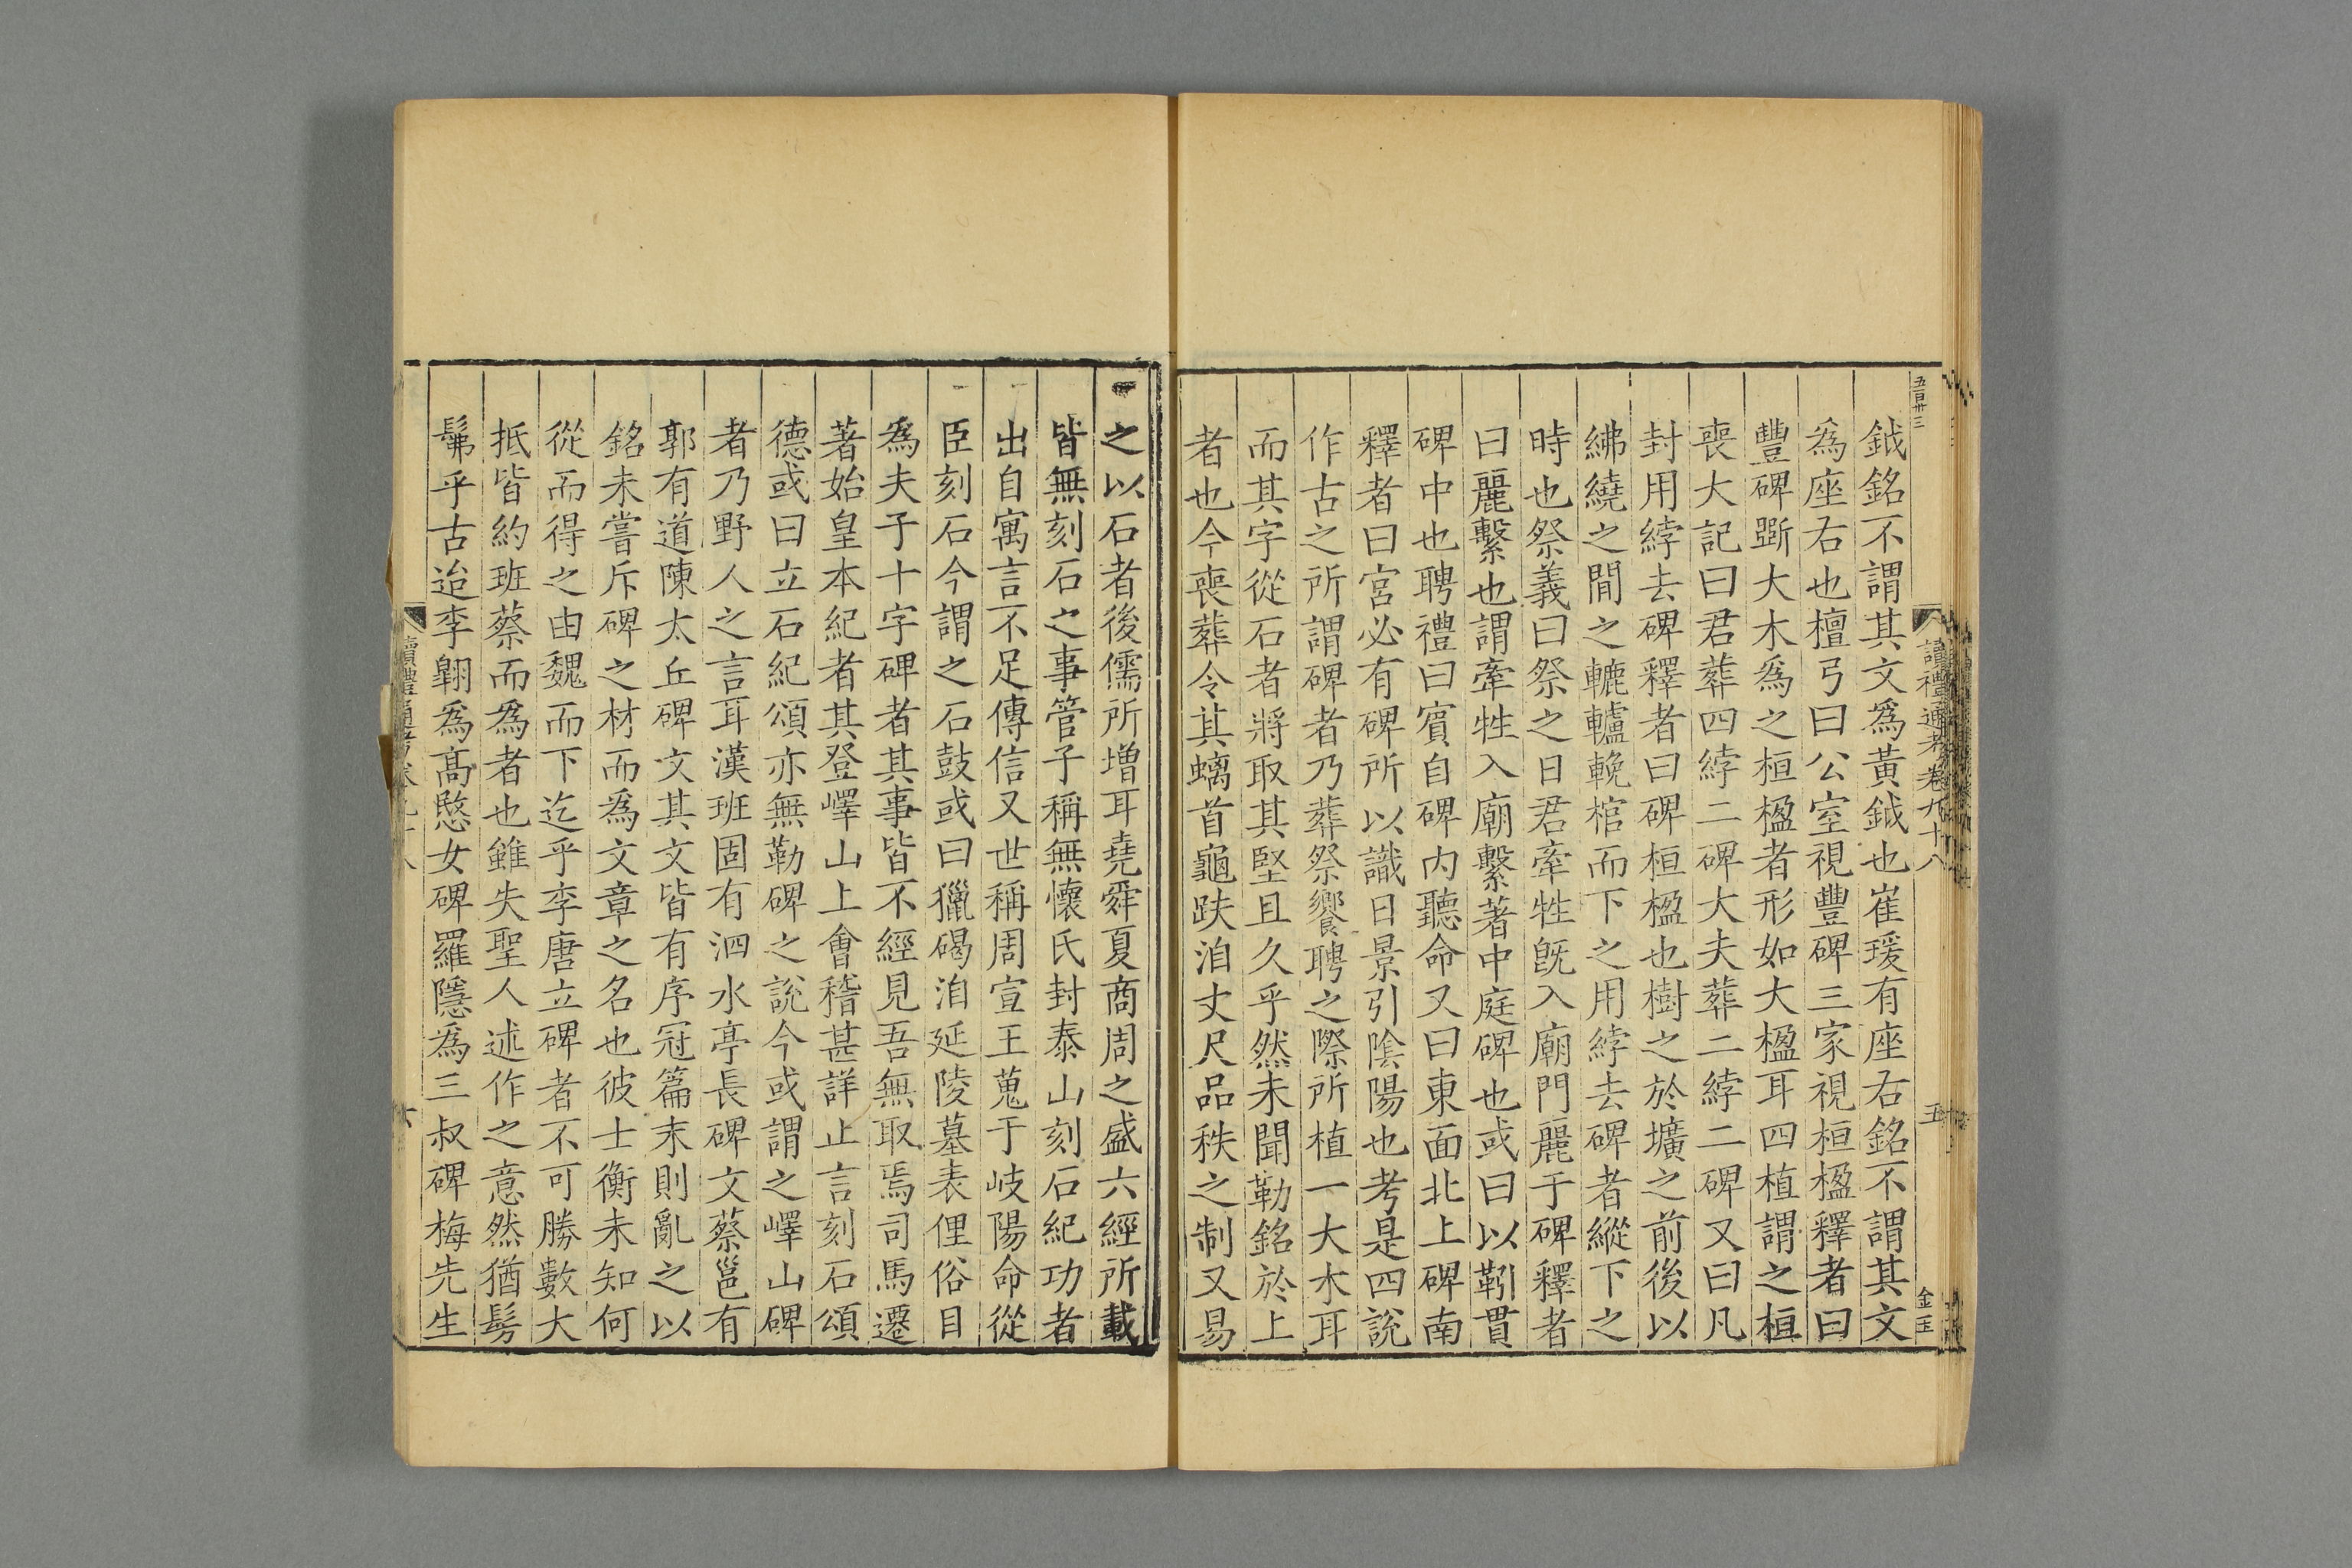 五百卅三
讀禮通考卷九十八
五
金玉
鉞銘不謂其文爲黃鉞也崔瑗有座右銘不謂其文
爲座右也檀弓曰公室視豐碑三家視桓楹釋者曰
豐碑斲大木爲之桓楹者形如大楹耳四植謂之桓
喪大記曰君葬四綍二碑大夫葬二綍二碑又曰凡
封用綍去碑釋者曰碑桓楹也樹之於壙之前後以
紼繞之閒之轆轤輓棺而下之用綍去碑者縱下之
時也祭義曰祭之日君牽牲旣入廟門麗于碑釋者
曰麗繫也謂牽牲入廟繫著中庭碑也或曰以靷貫
碑中也聘禮曰賓自碑內聽命又曰東面北上碑南
釋者曰宮必有碑所以識日景引陰陽也考是四說
作古之所謂碑者乃葬祭饗聘之際所植一大木耳
而其字從石者將取其堅且久乎然未聞勒銘於上
者也今喪葬令其螭首龜趺洎丈尺品秩之制又易
之以石者後儒所增耳堯舜夏商周之盛六經所載
皆無刻石之事管子稱無懷氏封泰山刻石紀功者
出自寓言不足傳信又世稱周宣王蒐于岐陽命從
臣刻石今謂之石鼓或曰獵碣洎延陵墓表俚俗目
爲夫子十字碑者其事皆不經見吾無取焉司馬遷
著始皇本紀者其登嶧山上會稽甚詳止言刻石頌
德或曰立石紀頌亦無勒碑之說今或謂之嶧山碑
者乃野人之言耳漢班固有泗水亭長碑文蔡邕有
郭有道陳太丘碑文其文皆有序冠篇末則亂之以
銘未嘗斥碑之材而爲文章之名也彼士衡未知何
從而得之由魏而下迄乎李唐立碑者不可勝數大
抵皆約班蔡而爲者也雖失聖人述作之意然猶髣
髴乎古迨李翺爲高愍女碑羅隱爲三叔碑梅先生
讀禮通考卷九十八
六